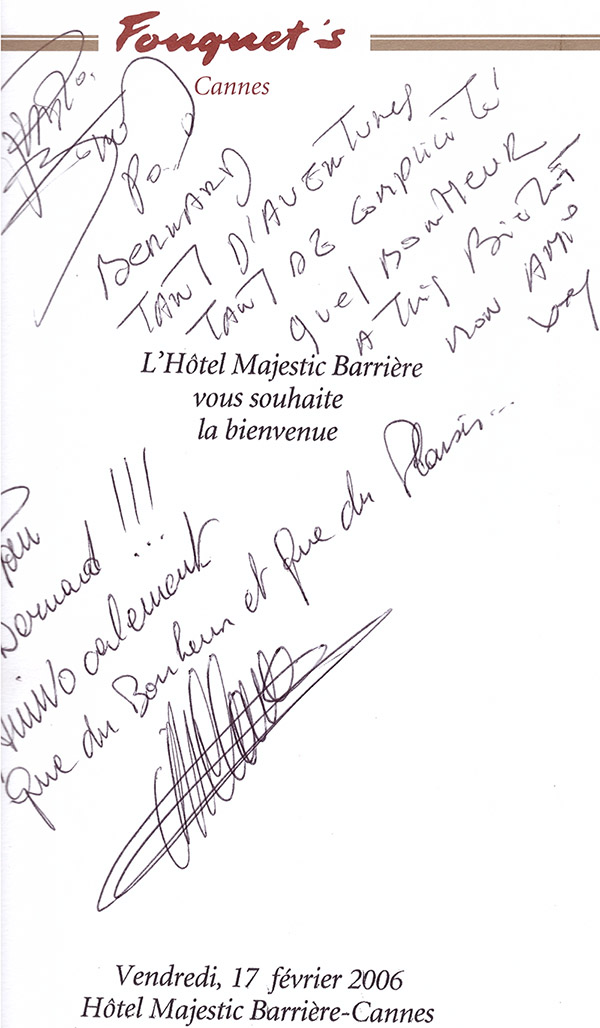 Fouquet's
Cannes
BERNARD
TANT D'AVENTURES
TANT DE COMPLICITÉ
QUEL BONHEUR
A TRÈS BIENTÔT
MON AMI
L'Hôtel Majestic Barrière
vous souhaite
la bienvenue
Pour
Bernard !!!
Amicalement
Que du Bonheur et Que du Plaisir...
Vendredi, 17 février 2006
Hôtel Majestic Barrière-Cannes